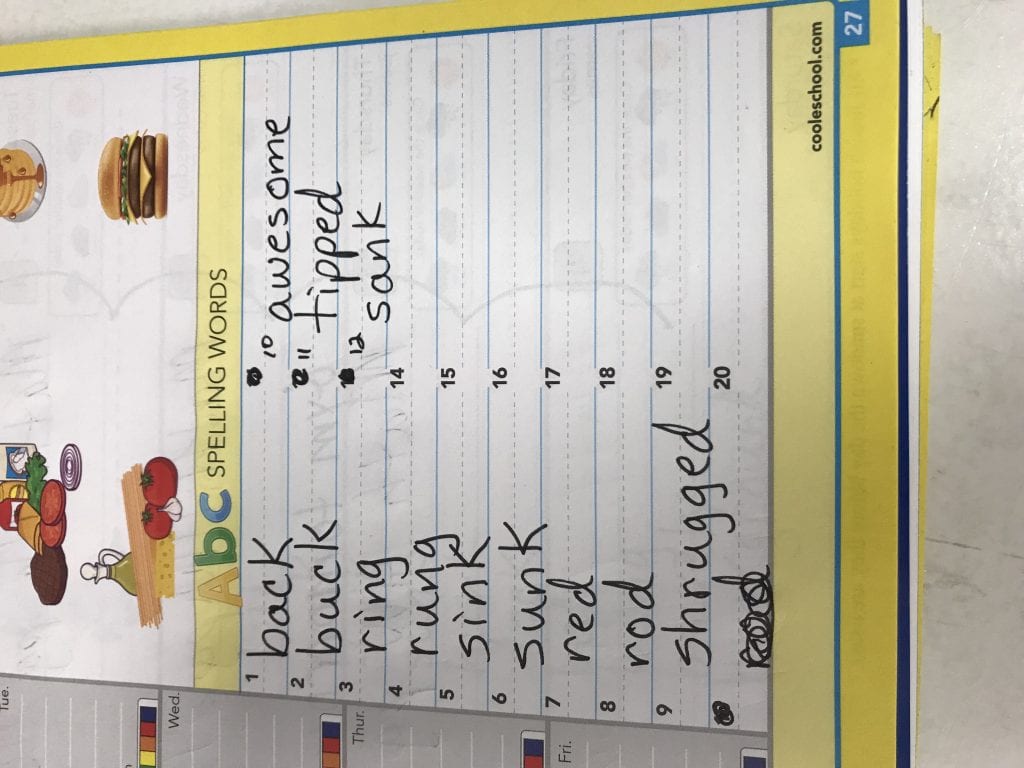 Tue.
Wed.
Thur.
Fri.
Abc SPELLING WORDS
1 back
2 buck
3 ring
4 rung
5 sink
6 sunk
7 red
8 rod
9 shrugged
10 awesome
11 tipped
12 sank
14
15
16
17
18
19
20
cooleschool.com
27